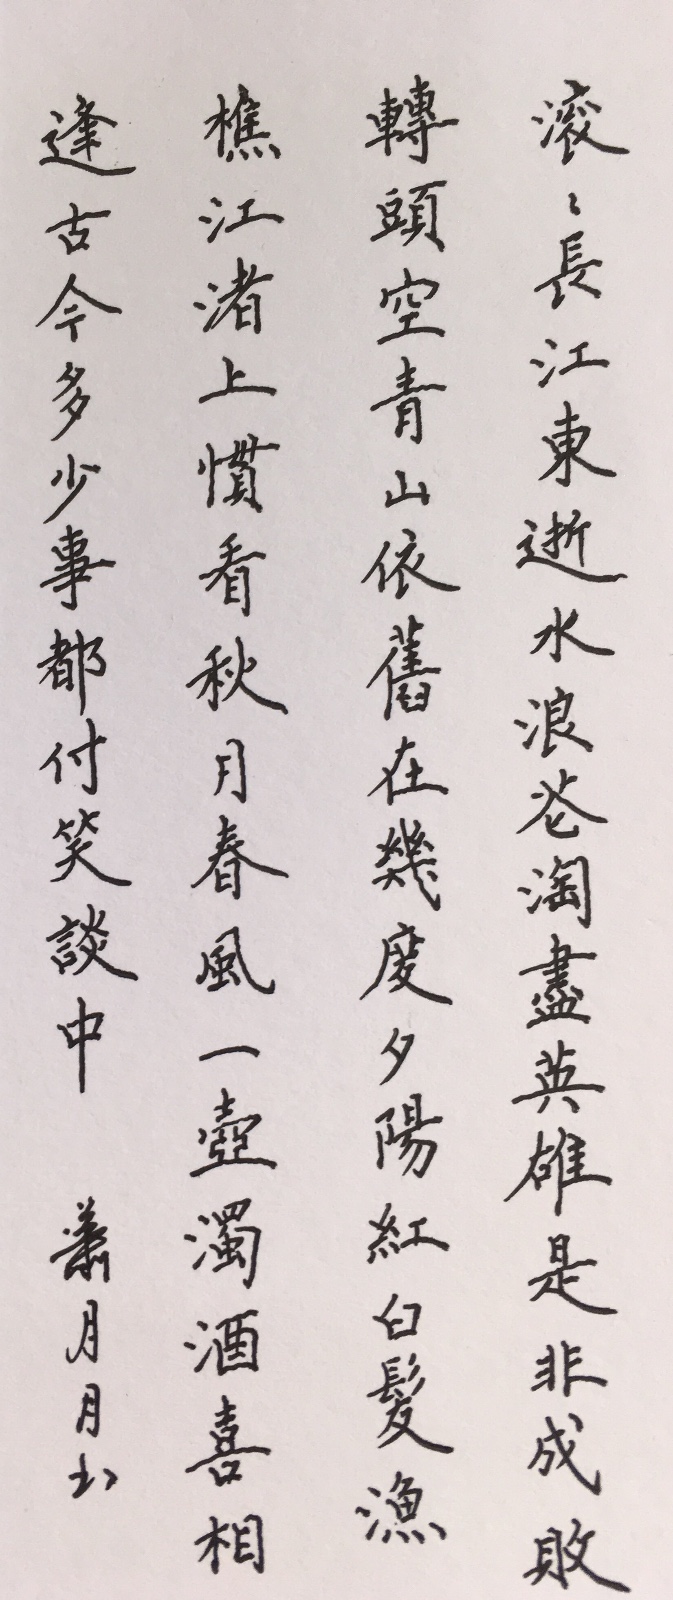 滾〻長江東逝水浪花淘盡英雄是非成敗
轉頭空青山依舊在幾度夕陽紅白髮漁
樵江渚上慣看秋月春風一壺濁酒喜相
逢古今多少事都付笑談中 蕭月月书